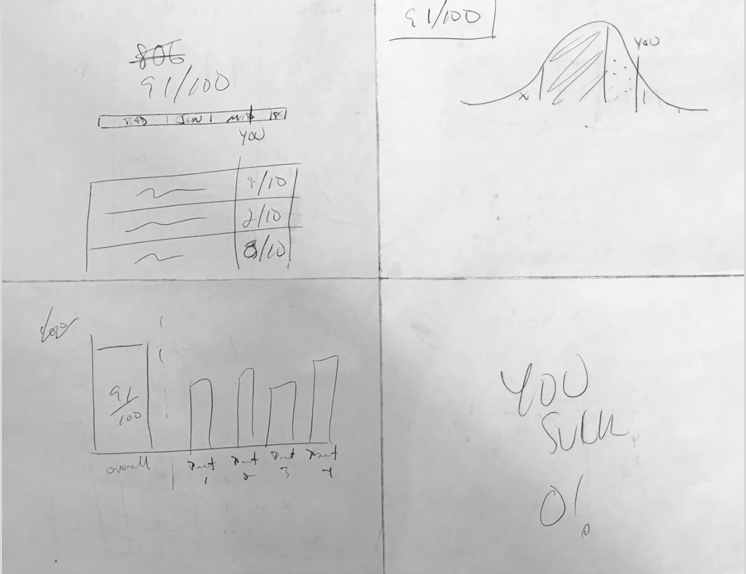 806
91/100
Jun
Mid
YOU
9/10
2/10
8/10
91/100
YOU
X
91/100
overall
Part 1
Part 2
Part 3
Part 4
YOU
SUCK
0!